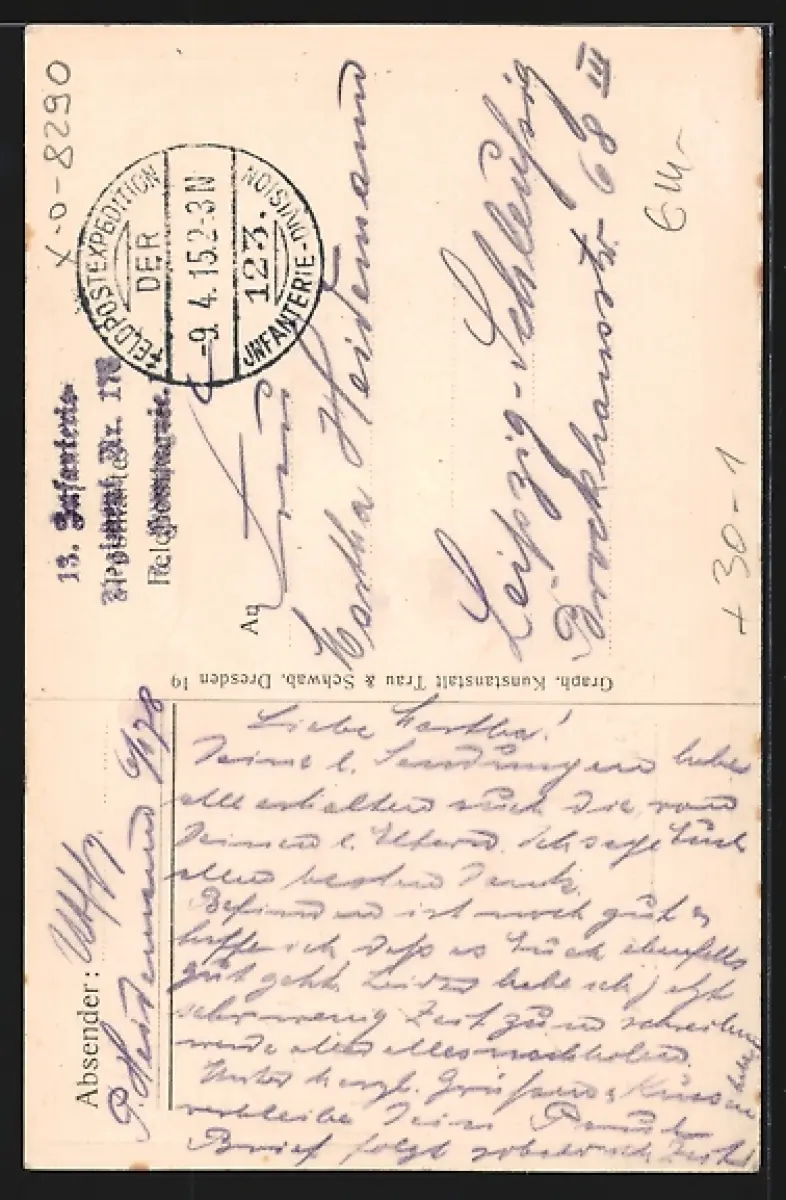 X-0-8290
FELDPOSTEXPEDITION
DER
-9.4.15.2-3N
123.
JNFANTERIE-DIVISION
13. Infanterie
Regiment Nr. 178
An
Frau
Martha Heidemann
Leipzig-Schleußig
Brockhausstr. 68 III
6M-
+30-1
Graph. Kunstanstalt Trau & Schwab, Dresden 19
Absender:
P. Heidemann 6/178
Liebe Martha!
Deine l. Sendungen habe
alle erhalten auch die von
Deinen l. Eltern. Ich sage Euch
allen besten Dank.
Befinden ist noch gut
hoffe ich, daß es Euch ebenfalls
gut geht. Leider habe ich jetzt
sehr wenig Zeit zum schreiben
werde aber alles nachholen.
Unter herzl. Grüßen & Küssen
verbleibe Dein
Brief folgt sobald ich Zeit